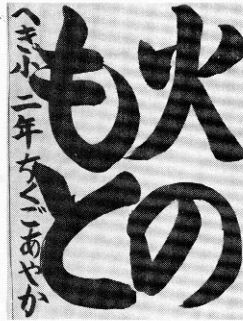 火の
もと
へき小二年ちくごあやか